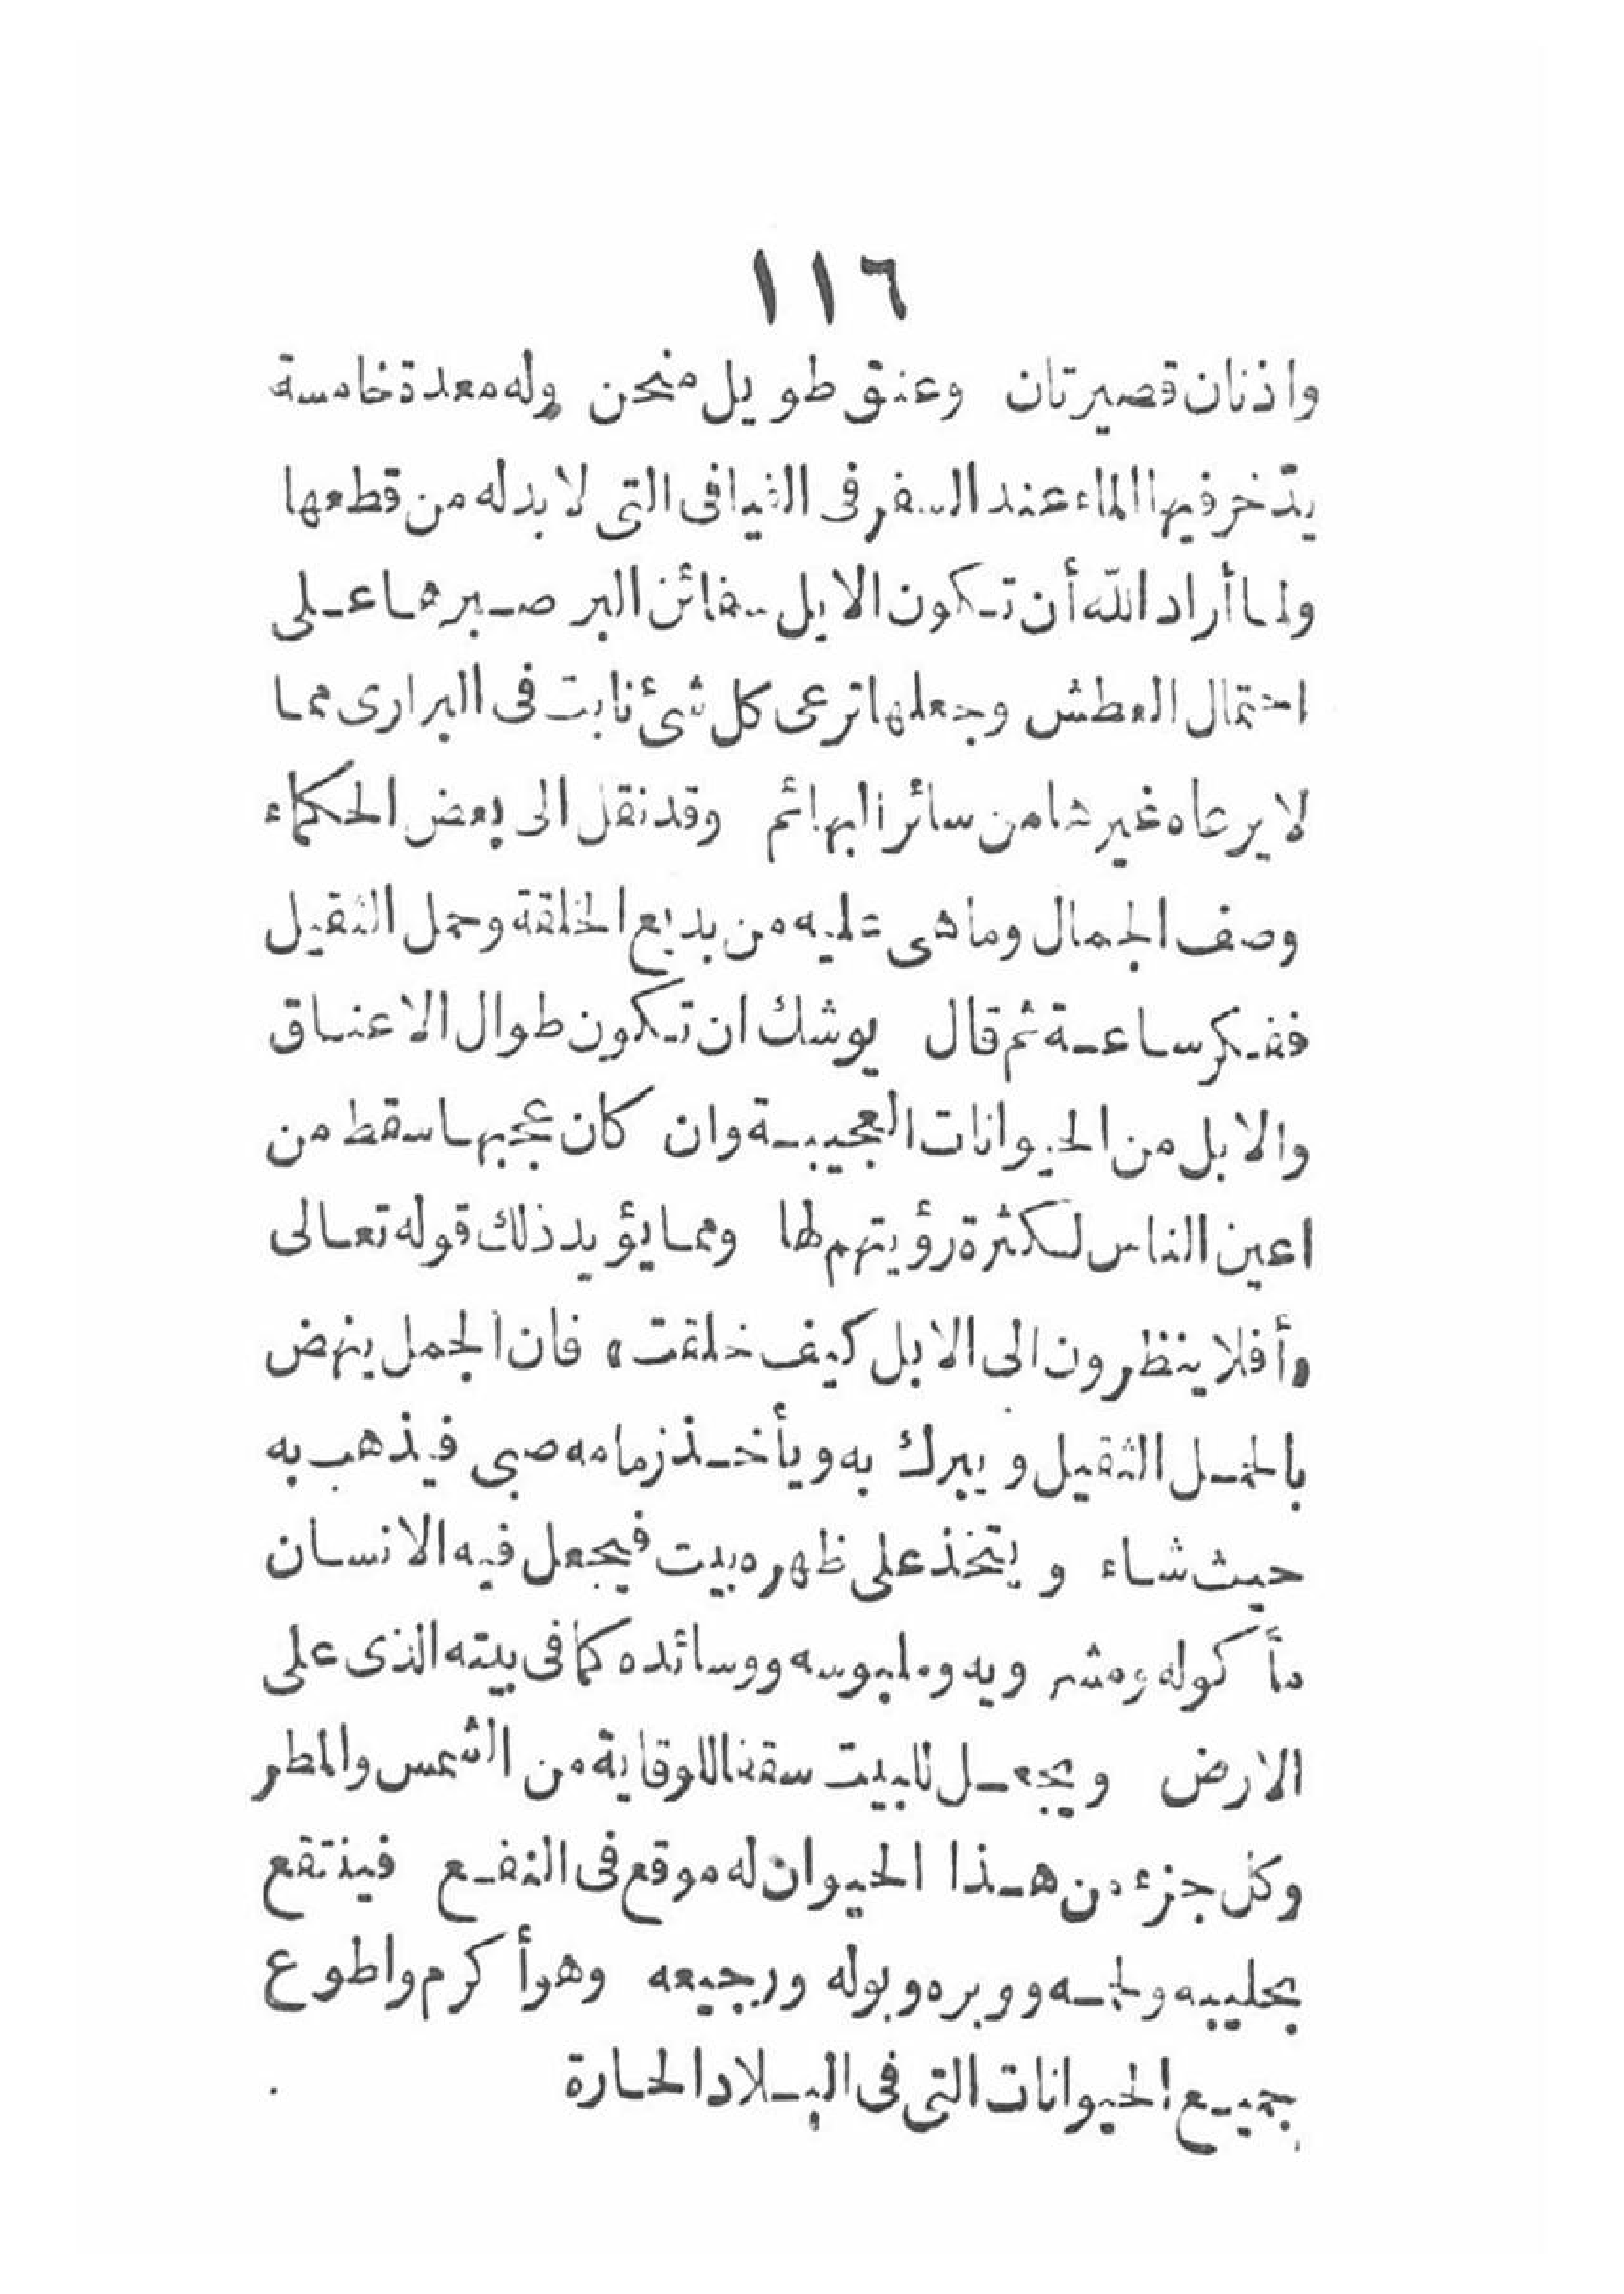 ١١٦
واذنان قصيرتان وعنق طويل منحن وله معدة خامسة
يدّخر فيها الماء عند السفر فى الفيافى التى لا بد له من قطعها
ولما أراد الله أن تكون الابل سفائن البر صبرها على
احتمال العطش وجعلها ترعى كل شئ نابت فى البرارى مما
لا يرعاه غيرها من سائر البهائم وقد نقل الى بعض الحكماء
وصف الجمال وما هى عليه من بديع الخلقة وحمل الثقيل
ففكر ساعة ثم قال يوشك ان تكون طوال الاعناق
والابل من الحيوانات العجيبة وان كان عجبها سقط من
اعين الناس لكثرة رؤيتهم لها ومما يؤيد ذلك قوله تعالى
«أفلا ينظرون الى الابل كيف خلقت» فان الجمل ينهض
بالحمل الثقيل ويبرك به ويأخذ زمامه صبى فيذهب به
حيث شاء ويتخذ على ظهره بيت فيجعل فيه الانسان
مأكوله ومشروبه وملبوسه ووسائده كما فى بيته الذى على
الارض ويجعل للبيت سقفا للوقاية من الشمس والمطر
وكل جزء من هذا الحيوان له موقع فى النفع فينتفع
بحليبه ولحمه ووبره وبوله ورجيعه وهو أكرم واطوع
جميع الحيوانات التى فى البلاد الحارة